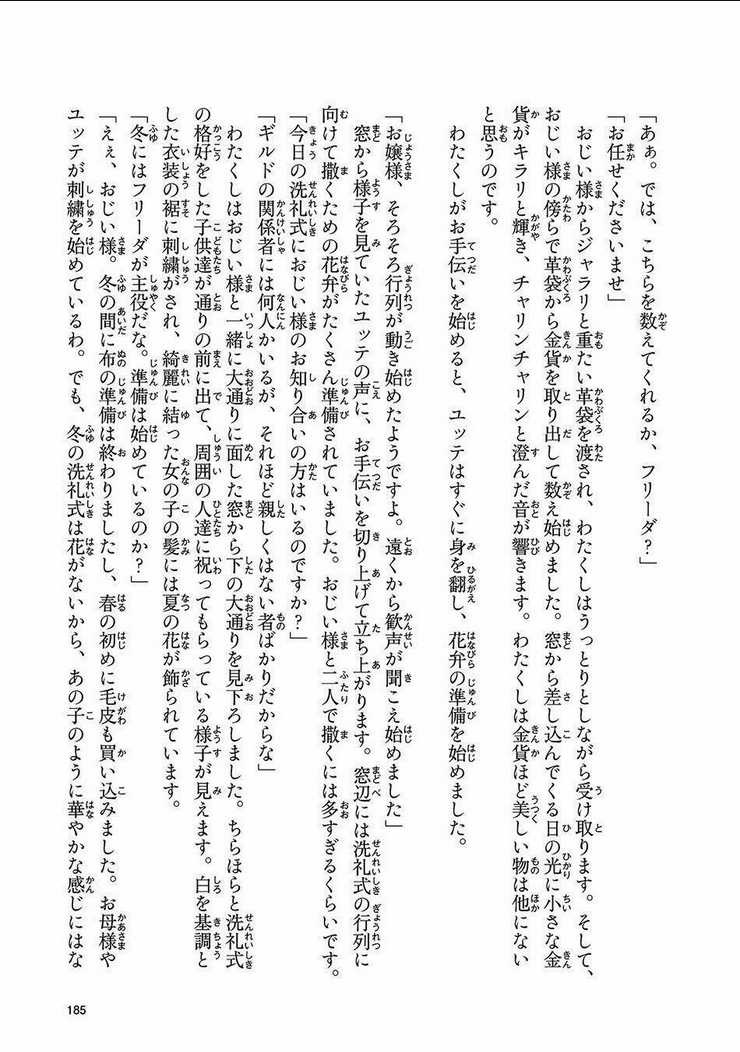 「あぁ。では、こちらを数えてくれるか、フリーダ？」
「お任せくださいませ」
おじい様からジャラリと重たい革袋を渡され、わたくしはうっとりとしながら受け取ります。そして、
おじい様の傍らで革袋から金貨を取り出して数え始めました。窓から差し込んでくる日の光に小さな金
貨がキラリと輝き、チャリンチャリンと澄んだ音が響きます。わたくしは金貨ほど美しい物は他にない
と思うのです。
わたくしがお手伝いを始めると、ユッテはすぐに身を翻し、花弁の準備を始めました。
「お嬢様、そろそろ行列が動き始めたようですよ。遠くから歓声が聞こえ始めました」
窓から様子を見ていたユッテの声に、お手伝いを切り上げて立ち上がります。窓辺には洗礼式の行列に
向けて撒くための花弁がたくさん準備されていました。おじい様と二人で撒くには多すぎるくらいです。
「今日の洗礼式におじい様のお知り合いの方はいるのですか？」
「ギルドの関係者には何人かいるが、それほど親しくはない者ばかりだからな」
わたくしはおじい様と一緒に大通りに面した窓から下の大通りを見下ろしました。ちらほらと洗礼式
の格好をした子供達が通りの前に出て、周囲の人達に祝ってもらっている様子が見えます。白を基調と
した衣装の裾に刺繍がされ、綺麗に結った女の子の髪には夏の花が飾られています。
「冬にはフリーダが主役だな。準備は始めているのか？」
「えぇ、おじい様。冬の間に布の準備は終わりましたし、春の初めに毛皮も買い込みました。お母様や
ユッテが刺繍を始めているわ。でも、冬の洗礼式は花がないから、あの子のように華やかな感じにはな
185